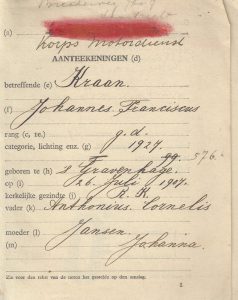 (a)
Korps Motordienst
AANTEEKENINGEN (d)
betreffende (e) Kraan.
(f) Johannes Franciscus
rang (c, te.) g.d.
categorie, lichting enz. (g) 1927.
99. 576.
geboren te (h) 's Gravenhage.
op (i) 26 Juli 1907.
kerkelijke gezindte (j) R. K.
vader (k) Anthonius Cornelis
moeder (l) Jansen
(m) Johanna.
Zie voor den tekst van de noten het gestelde op den omslag.